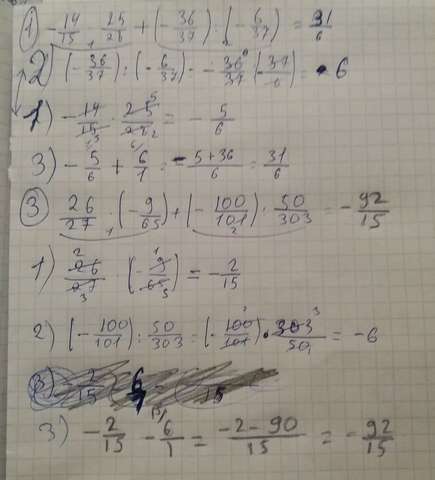 ① -14/15 · 25/28 + (-36/37) : (-6/37) = 31/6
2) (-36/37) : (-6/37) = -36/37 · (-37/6) = 6
1) -14/15 · 25/28 = -5/6
3) -5/6 + 6/1 = -5+36/6 = 31/6
③ 26/27 · (-9/65) + (-100/101) : 50/303 = -92/15
1) 26/27 · (-9/65) = -2/15
2) (-100/101) : 50/303 = (-100/101) · 303/50 = -6
3) -2/15 - 6/1 = -2-90/15 = -92/15